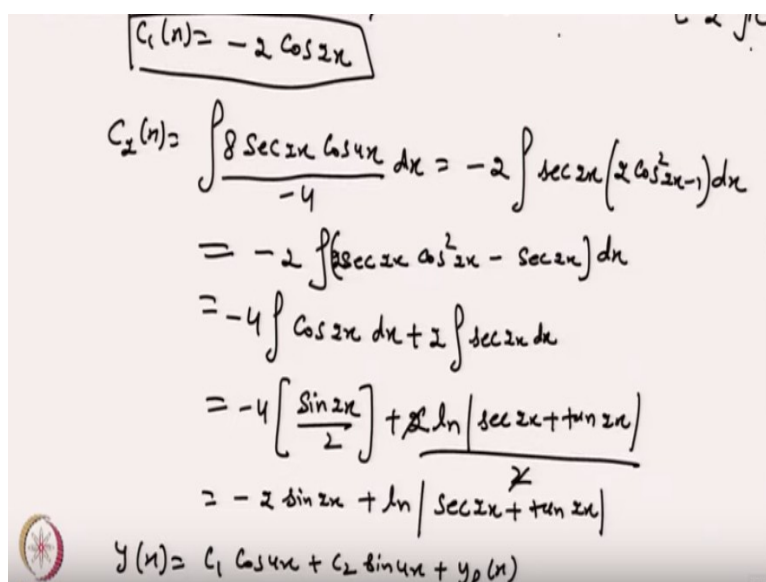 C₁(x) = - 2 Cos 2x
C₂(x) = ∫ 8 Sec 2x Cos 4x / -4 dx = - 2 ∫ sec 2x (2 Cos² 2x - 1) dx
= - 2 ∫ [2 sec 2x cos² 2x - Sec 2x] dx
= - 4 ∫ Cos 2x dx + 2 ∫ sec 2x dx
= - 4 [Sin 2x / 2] + 2 ln |sec 2x + tan 2x| / 2
= - 2 sin 2x + ln |sec 2x + tan 2x|
y(x) = C₁ Cos 4x + C₂ Sin 4x + yₚ(x)